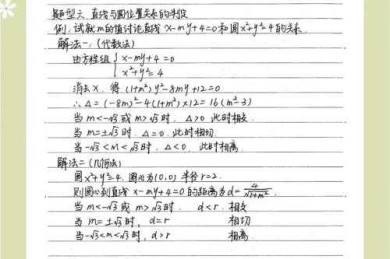 题型六 直线与圆位置关系的判断
例. 试就m的值讨论直线 x-my+4=0和圆x²+y²=4的关系.
解法一: (代数法)
由方程组 { x-my+4=0
x²+y²=4
消去x, 得 (1+m²)y²-8my+12=0
∴△=(-8m)²-4(1+m²)×12=16(m²-3)
当 m<-√3 或 m>√3 时. △>0 此时相交
当 m=±√3 时. △=0. 此时相切.
当 -√3<m<√3 时. △<0. 此时相离.
解法二: (几何法)
圆x²+y²=4. 圆心为(0,0) 半径r=2.
则圆心到直线 x-my+4=0的距离为d=4/√(1+m²)
当 m<-√3 或 m>√3 时. d<r. 相交
当 m=±√3 时, d=r 相切
当 -√3<m<√3 时, d>r 相离.